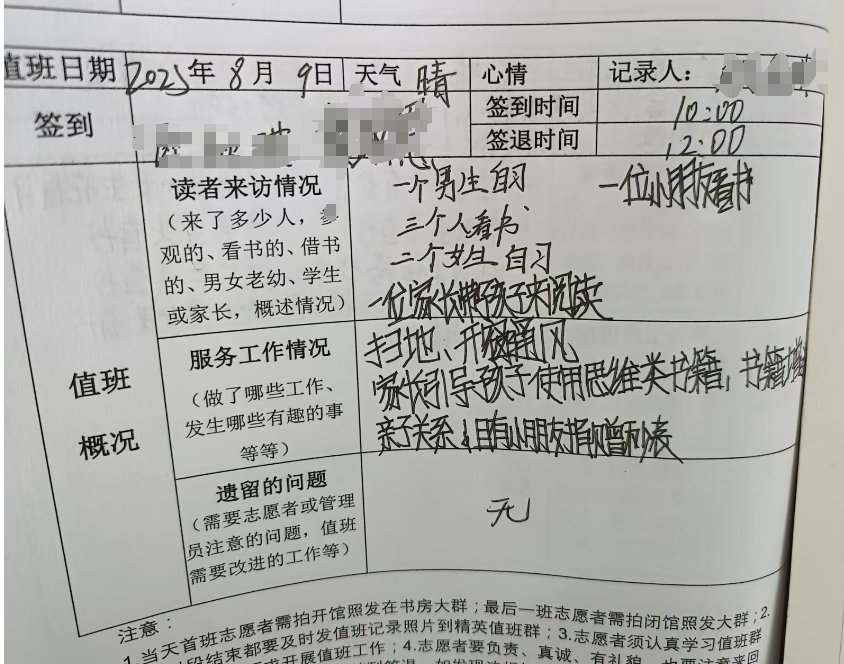 值班日期 2025年 8月 9日 天气 晴 心情 记录人：
签到 签到时间 10:00
签退时间 12:00
值班概况
读者来访情况
（来了多少人，参
观的、看书的、借书
的、男女老幼、学生
或家长，概述情况）
一个男生自习 一位小朋友看书
三个人看书
二个女生自习
一位家长带孩子来阅读
服务工作情况
（做了哪些工作、
发生哪些有趣的事
等等）
扫地、开窗通风
家长引导孩子使用思维类书籍，书籍增
亲子关系
有小朋友捐赠
遗留的问题
（需要志愿者或管理
员注意的问题，值班
需要改进的工作等）
无
注意：
1.当天首班志愿者需拍开馆照发在书房大群；最后一班志愿者需拍闭馆照发大群；2.
段结束都要及时发值班记录照片到精英值班群；3.志愿者须认真学习值班群
开展值班工作；4.志愿者要负责、真诚、有礼貌